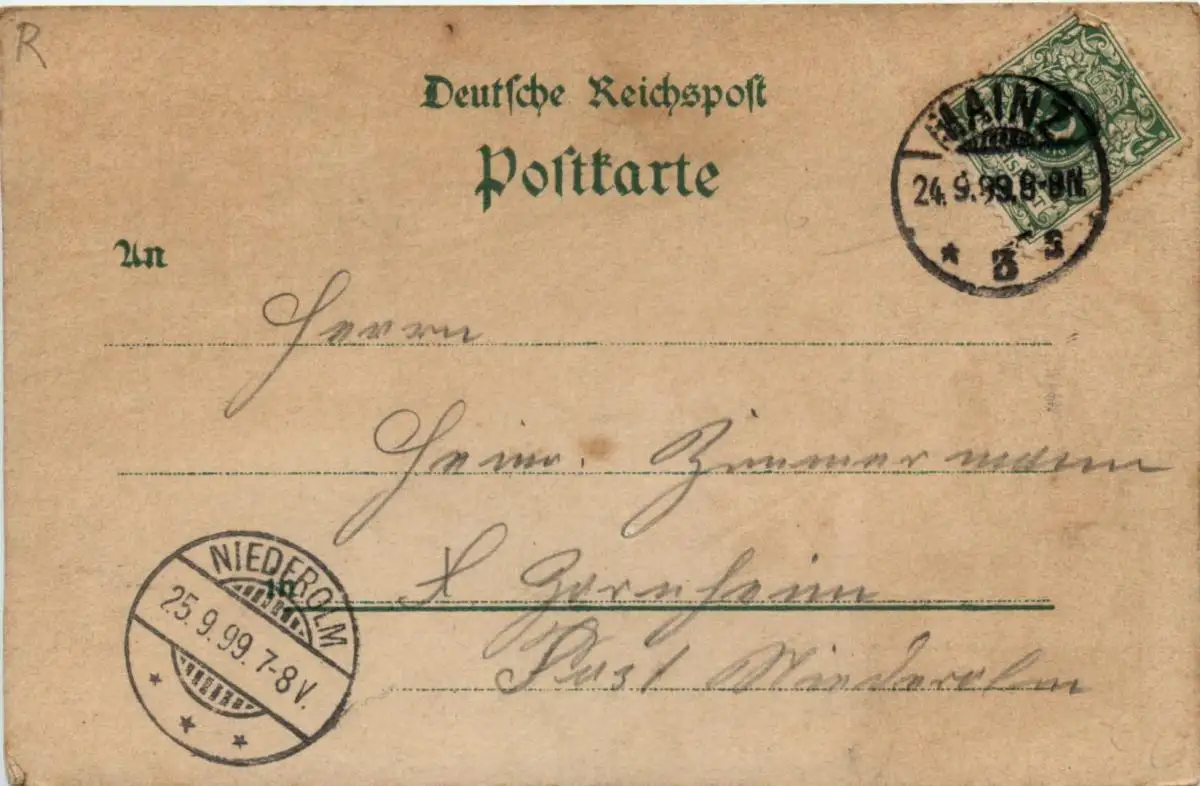 R
Deutsche Reichspost
Postkarte
MAINZ
24.9.99.8-9N.
* 3 s
An
Herrn
Heinr. Zimmermann
in
X Zornheim
Post Niederolm
NIEDEROLM
25.9.99.7-8V.